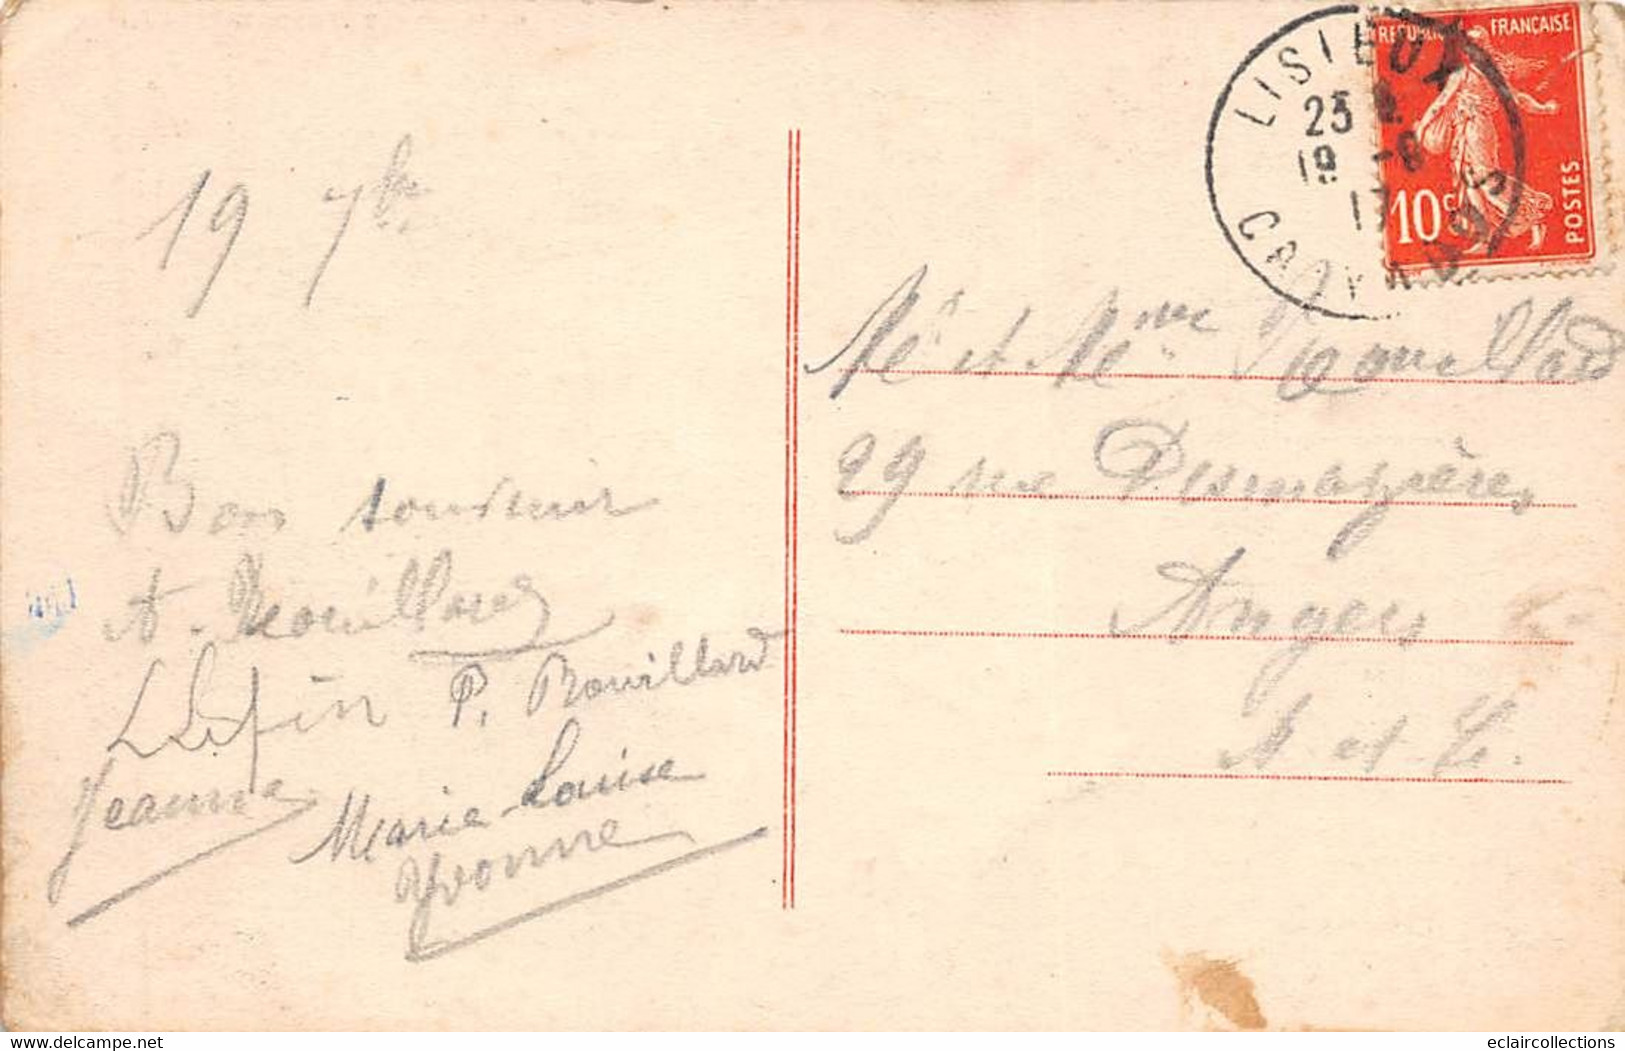 19 7bre
Bon souvenir
A. Rouillard
Lefin P. Rouillard
Jeanne Marie-Louise
Yvonne
LISIEUX
25
19 -9
17
CALVADOS
REPUBLIQUE FRANÇAISE
10c
POSTES
Mr et Mme Rouillard
29 rue Desmazières
Angers
M et L.
delcampe.net
eclaircollections